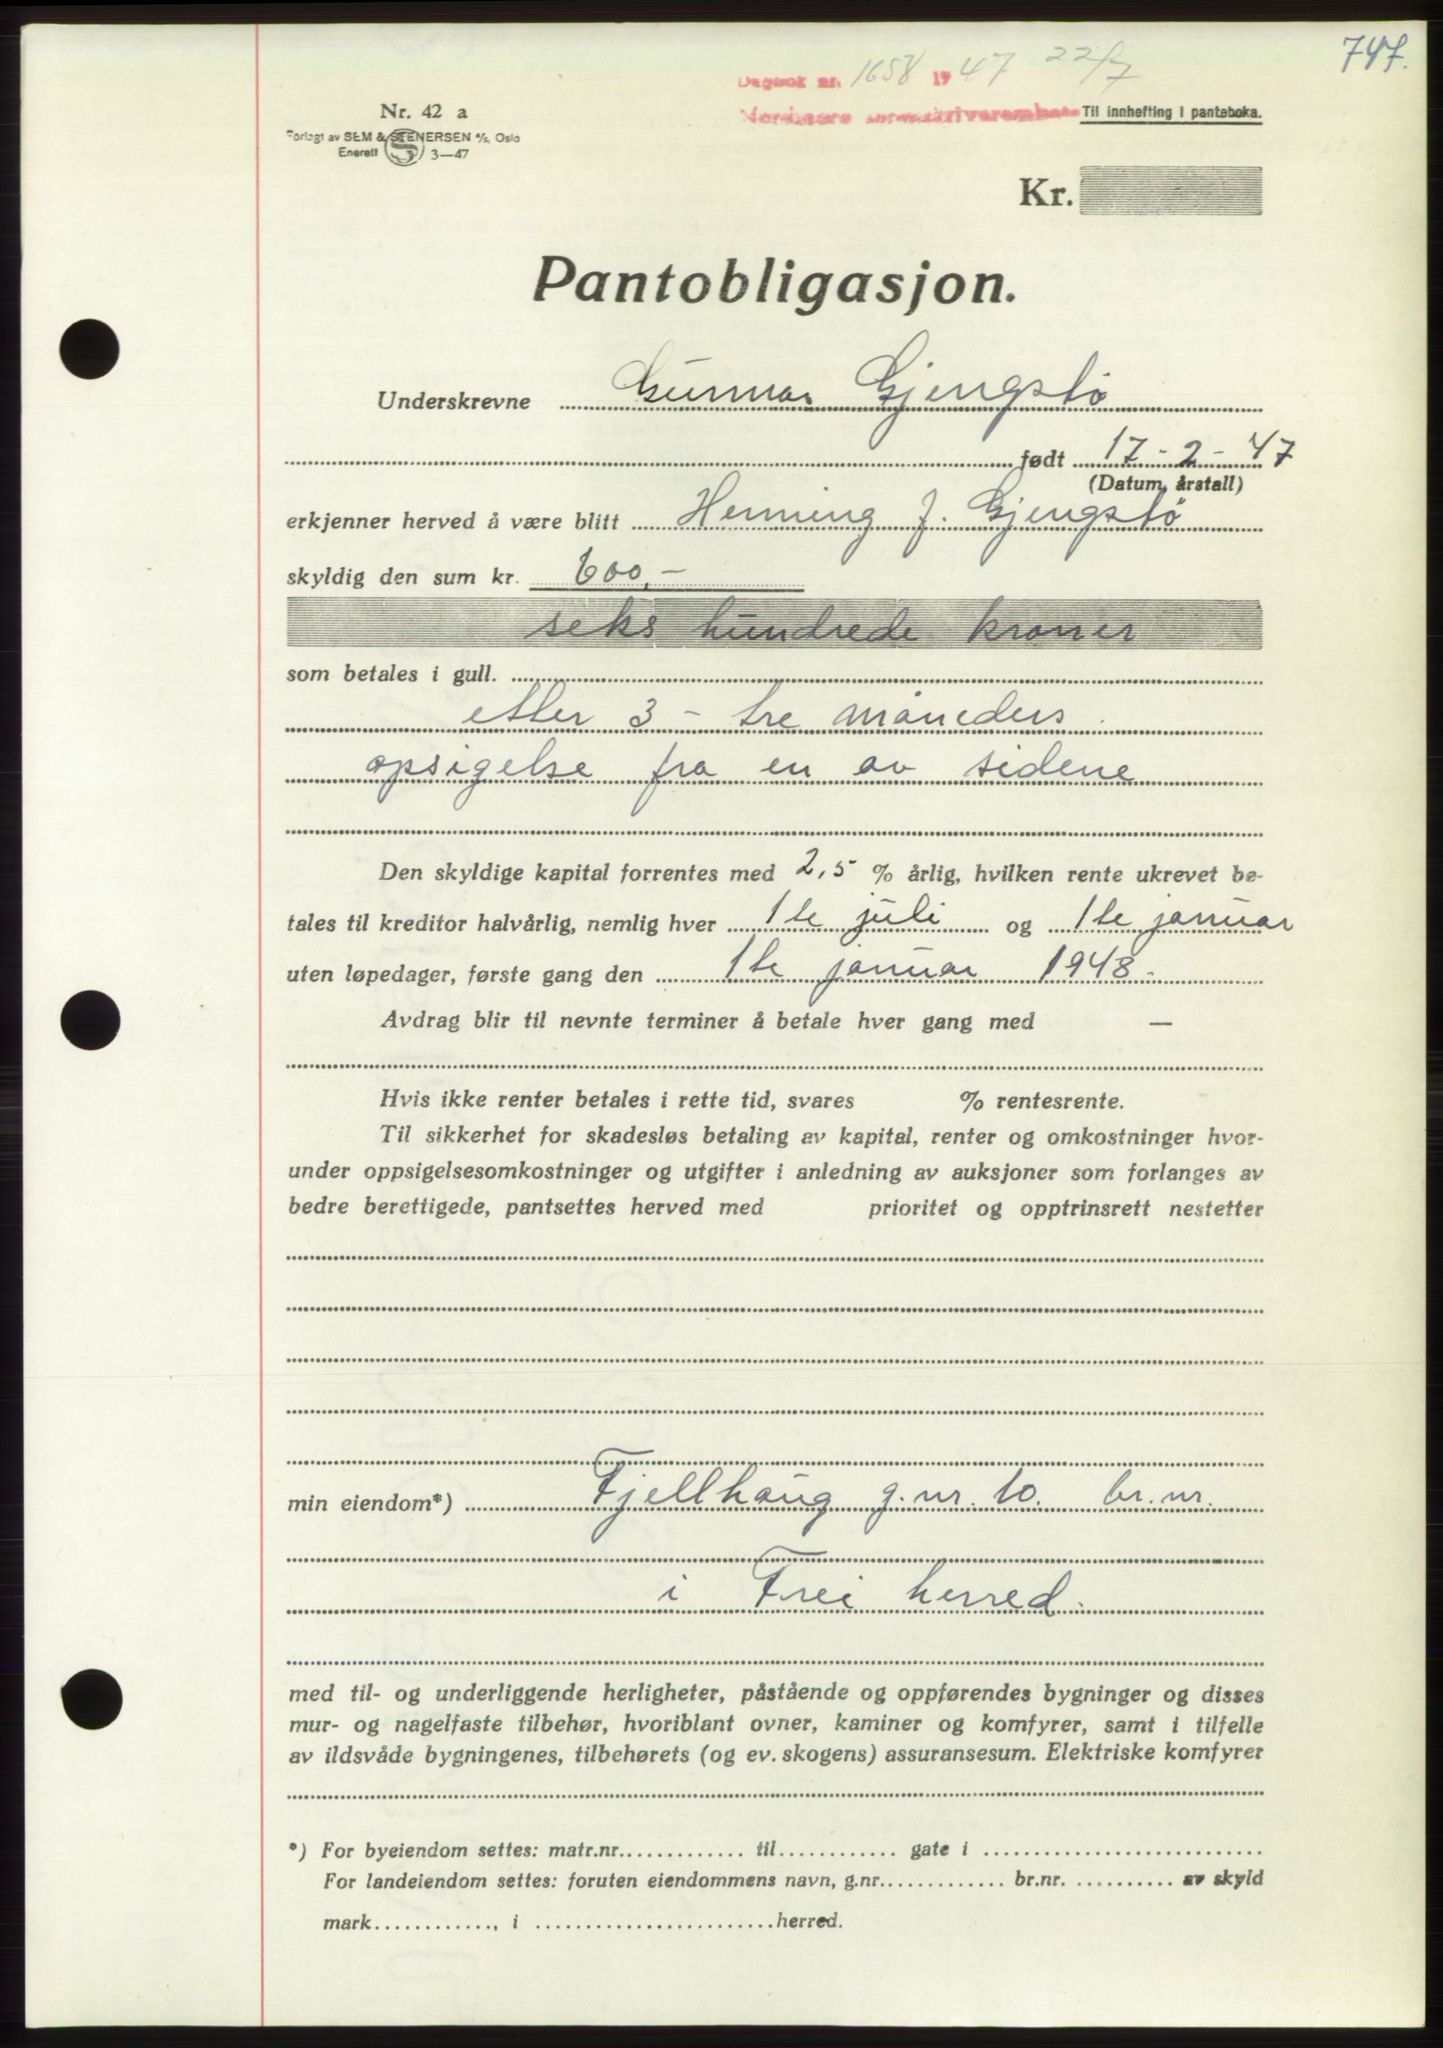 747.
Dagbok nr. 1658 1947 22/7
Nordmøre sorenskriverembete
Til innhefting i panteboka.
Nr. 42 a
Forlagt av SEM & STENERSEN A/S, Oslo
Enerett S 3—47
Kr.
Pantobligasjon.
Underskrevne Gunnar Gjengstø
født 17-2-47
(Datum, årstall)
erkjenner herved å være blitt Henning J. Gjengstø
skyldig den sum kr. 600,-
seks hundrede kroner
som betales i gull.
etter 3 - tre måneders
opsigelse fra en av sidene
Den skyldige kapital forrentes med 2,5 % årlig, hvilken rente ukrevet be-
tales til kreditor halvårlig, nemlig hver 1te juli og 1te januar
uten løpedager, første gang den 1te januar 1948.
Avdrag blir til nevnte terminer å betale hver gang med —
Hvis ikke renter betales i rette tid, svares % rentesrente.
Til sikkerhet for skadesløs betaling av kapital, renter og omkostninger hvor-
under oppsigelsesomkostninger og utgifter i anledning av auksjoner som forlanges av
bedre berettigede, pantsettes herved med prioritet og opptrinsrett nestetter
min eiendom*) Fjellhaug g.nr. 10. br.nr.
i Frei herred.
med til- og underliggende herligheter, påstående og oppførendes bygninger og disses
mur- og nagelfaste tilbehør, hvoriblant ovner, kaminer og komfyrer, samt i tilfelle
av ildsvåde bygningenes, tilbehørets (og ev. skogens) assuransesum. Elektriske komfyrer
*) For byeiendom settes: matr.nr. til gate i
For landeiendom settes: foruten eiendommens navn, g.nr. br.nr. av skyld
mark, i herred.